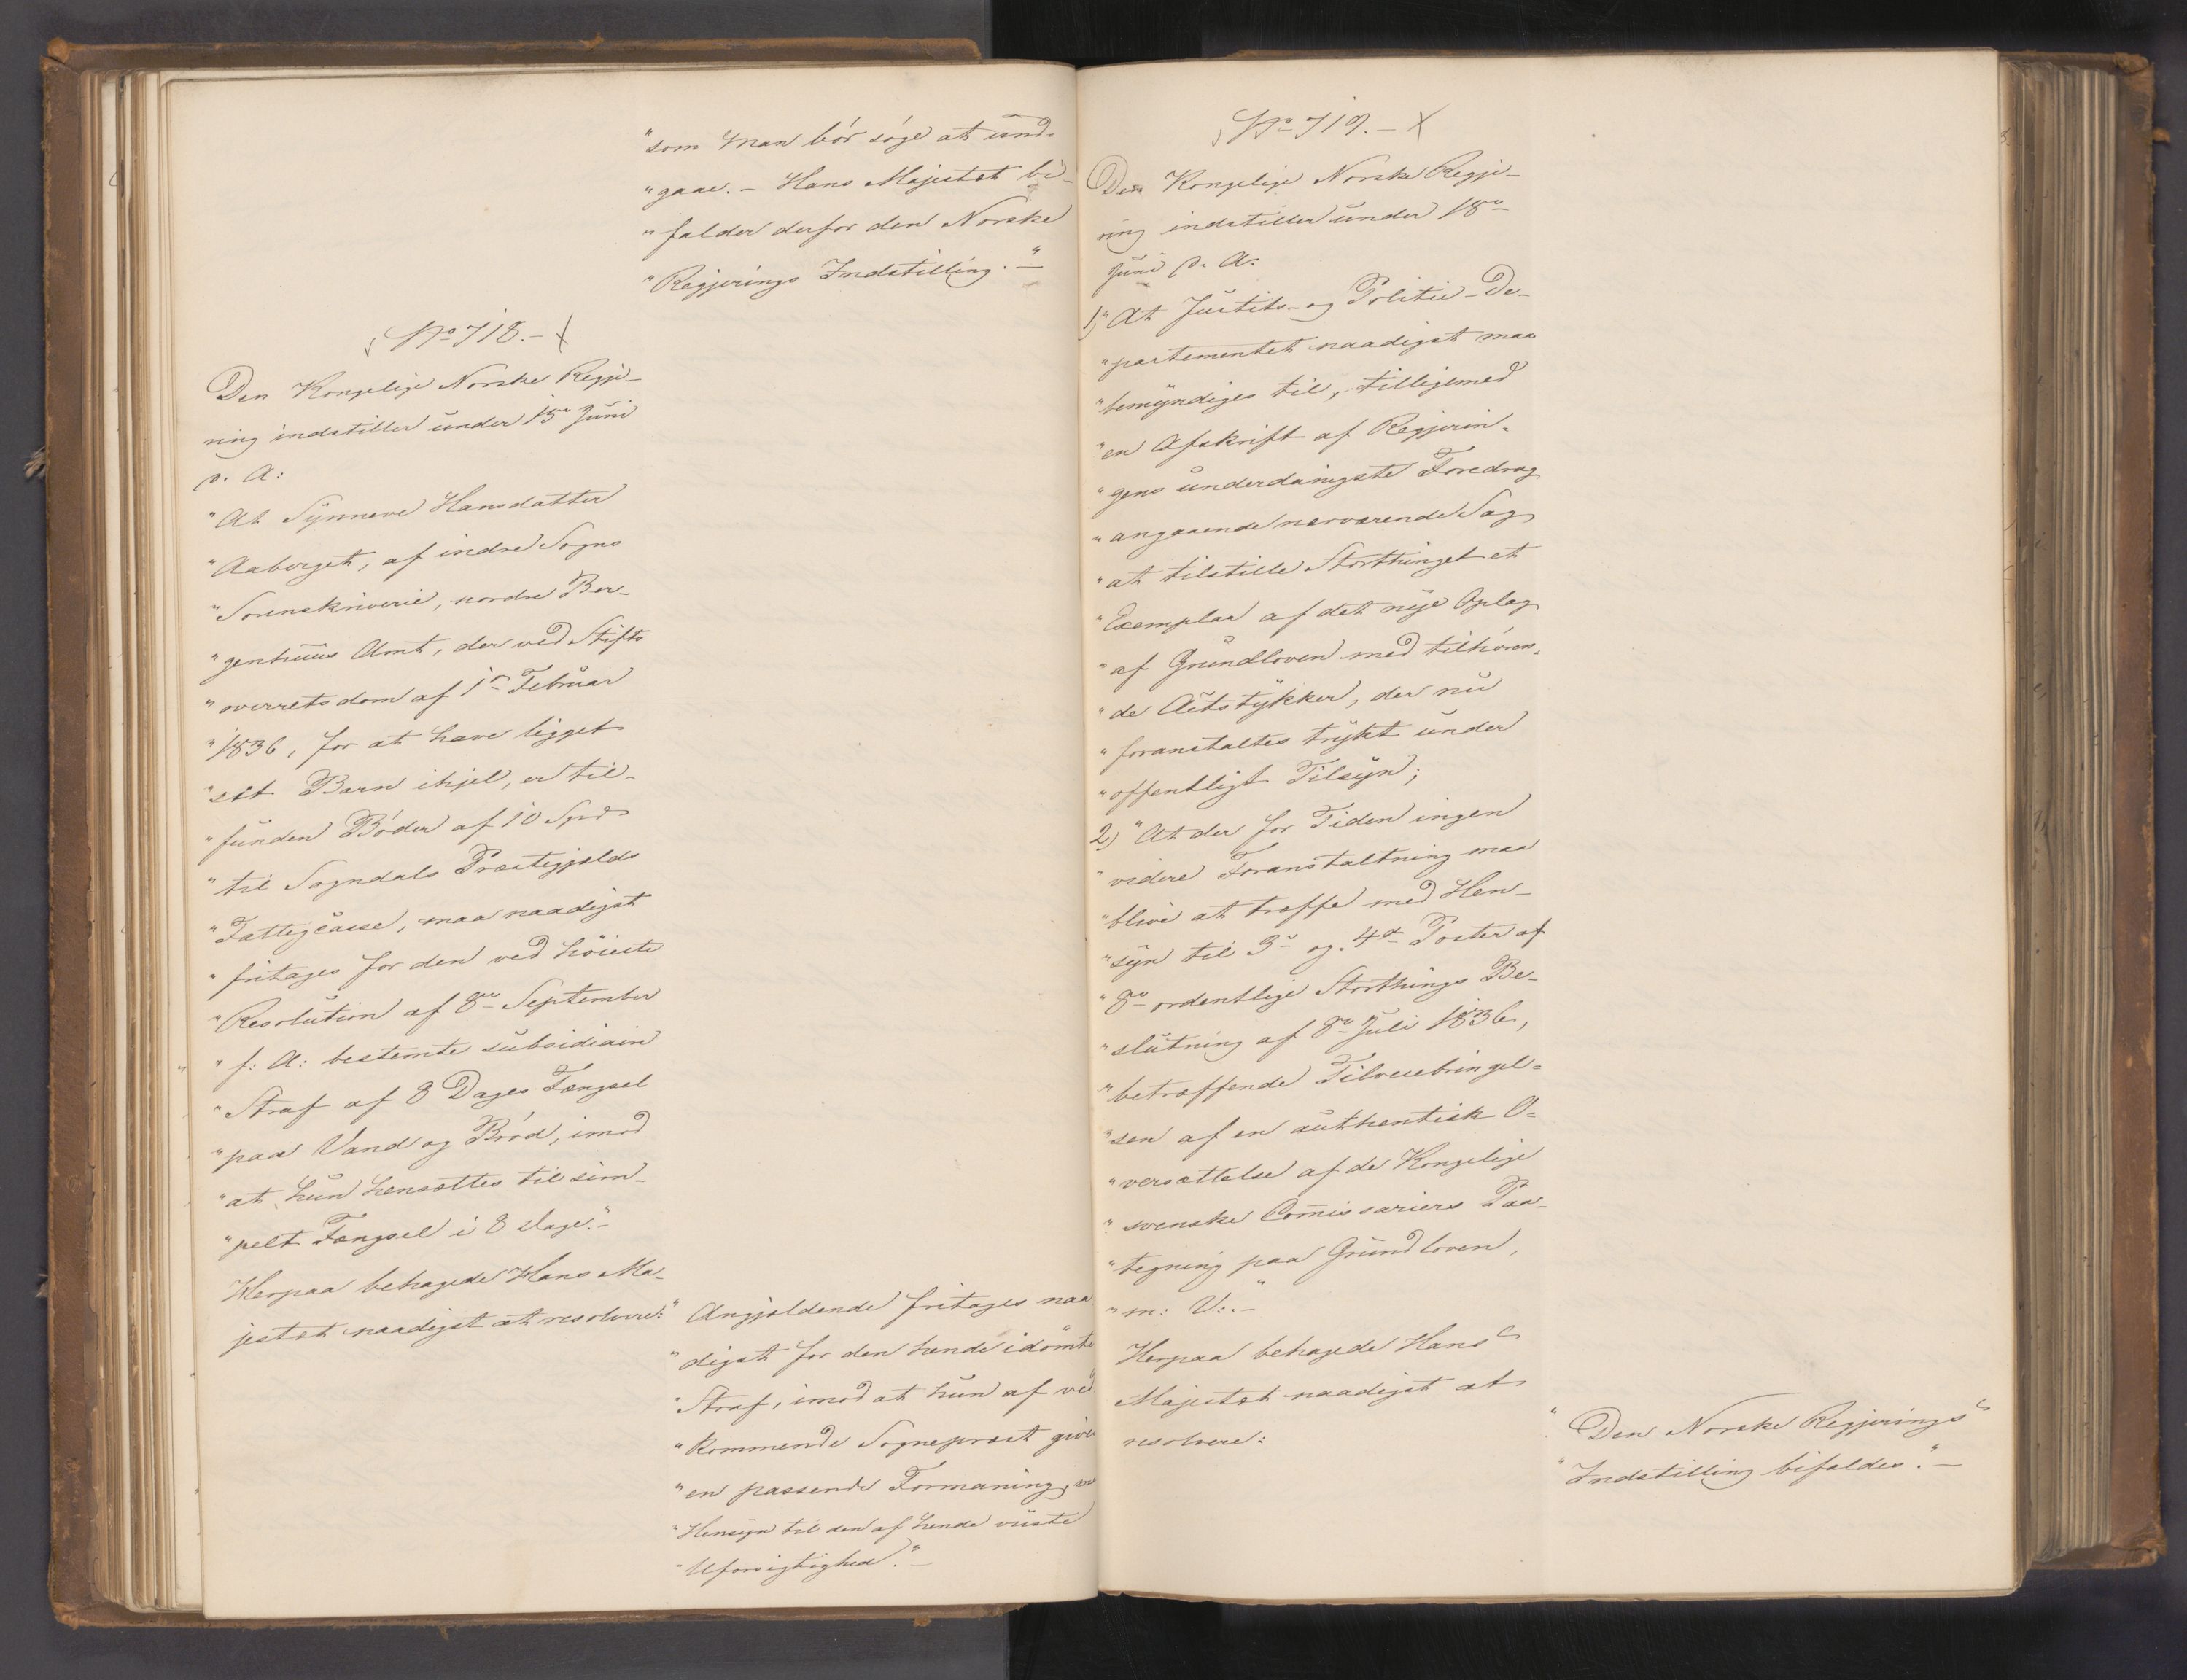 "som man bör söge at und-
"gaae. - Hans Majestæt bi-
"falder derfor den Norske
"Regjerings Indstilling."-
No 718.-
Den Kongelige Norske Regje-
ring indstiller under 15de Juni
d. A:
"At Synneve Hansdatter
"Aaberget, af indre Sogns
"Sorenskriverie, nordre Ber-
"genhuus Amt, der ved Stifts
"overretsdom af 1ste Februar
"1836, for at have ligget
"sit Barn ihjel, er til-
"funden Böder af 10 Spd
"til Sogndals Præstegjælds
"Fattigcasse, maa naadigst
"fritages for den ved höieste
"Resolution af 8de September
"f: A: bestemte subsidiaire
"Straf af 8 Dages Fængsel
"paa Vand og Bröd, imod
"at hun hensættes til sim-
"pelt Fængsel i 8 dage."-
Herpaa behagede Hans Ma-
jestæt naadigst at resolvere:
"Angjældende fritages naa
"digst for den hende idömte
"Straf, imod at hun af ved
"kommende Sognepræst gives
"en passende Formaning,
"Hensyn til den af hende viiste
"Uforsigtighed."-
No 719.-
Den Kongelige Norske Regje-
ring indstiller under 18de
Juni d. A:
1) "At Justits- og Politie-De-
"partementet naadigst maa
"bemyndiges til, tilligemed
"en Afskrift af Regjerin-
"gens underdanigste Foredrag
"angaaende nærværende Sag
"at tilstille Storthinget et
"Exemplar af det nye Oplag
"af Grundloven med tilhören-
"de Actstykker, der nu
"foranstaltes trykt under
"offentligt Tilsyn;
2) "At der for Tiden ingen
"videre Foranstaltning maa
"blive at træffe med Hen-
"syn til 3die og 4de Poster af
"8de ordentlige Storthings Be-
"slutning af 8de Juli 1836,
"betræffende Tilveiebringel-
"sen af en authentisk O-
"versættelse af de Kongelige
"svenske Comissariers Paa-
"tegning paa Grundloven,
"m: V:."-
Herpaa behagede Hans
Majestæt naadigst at
resolvere:
"Den Norske Regjerings
"Indstilling bifaldes."-